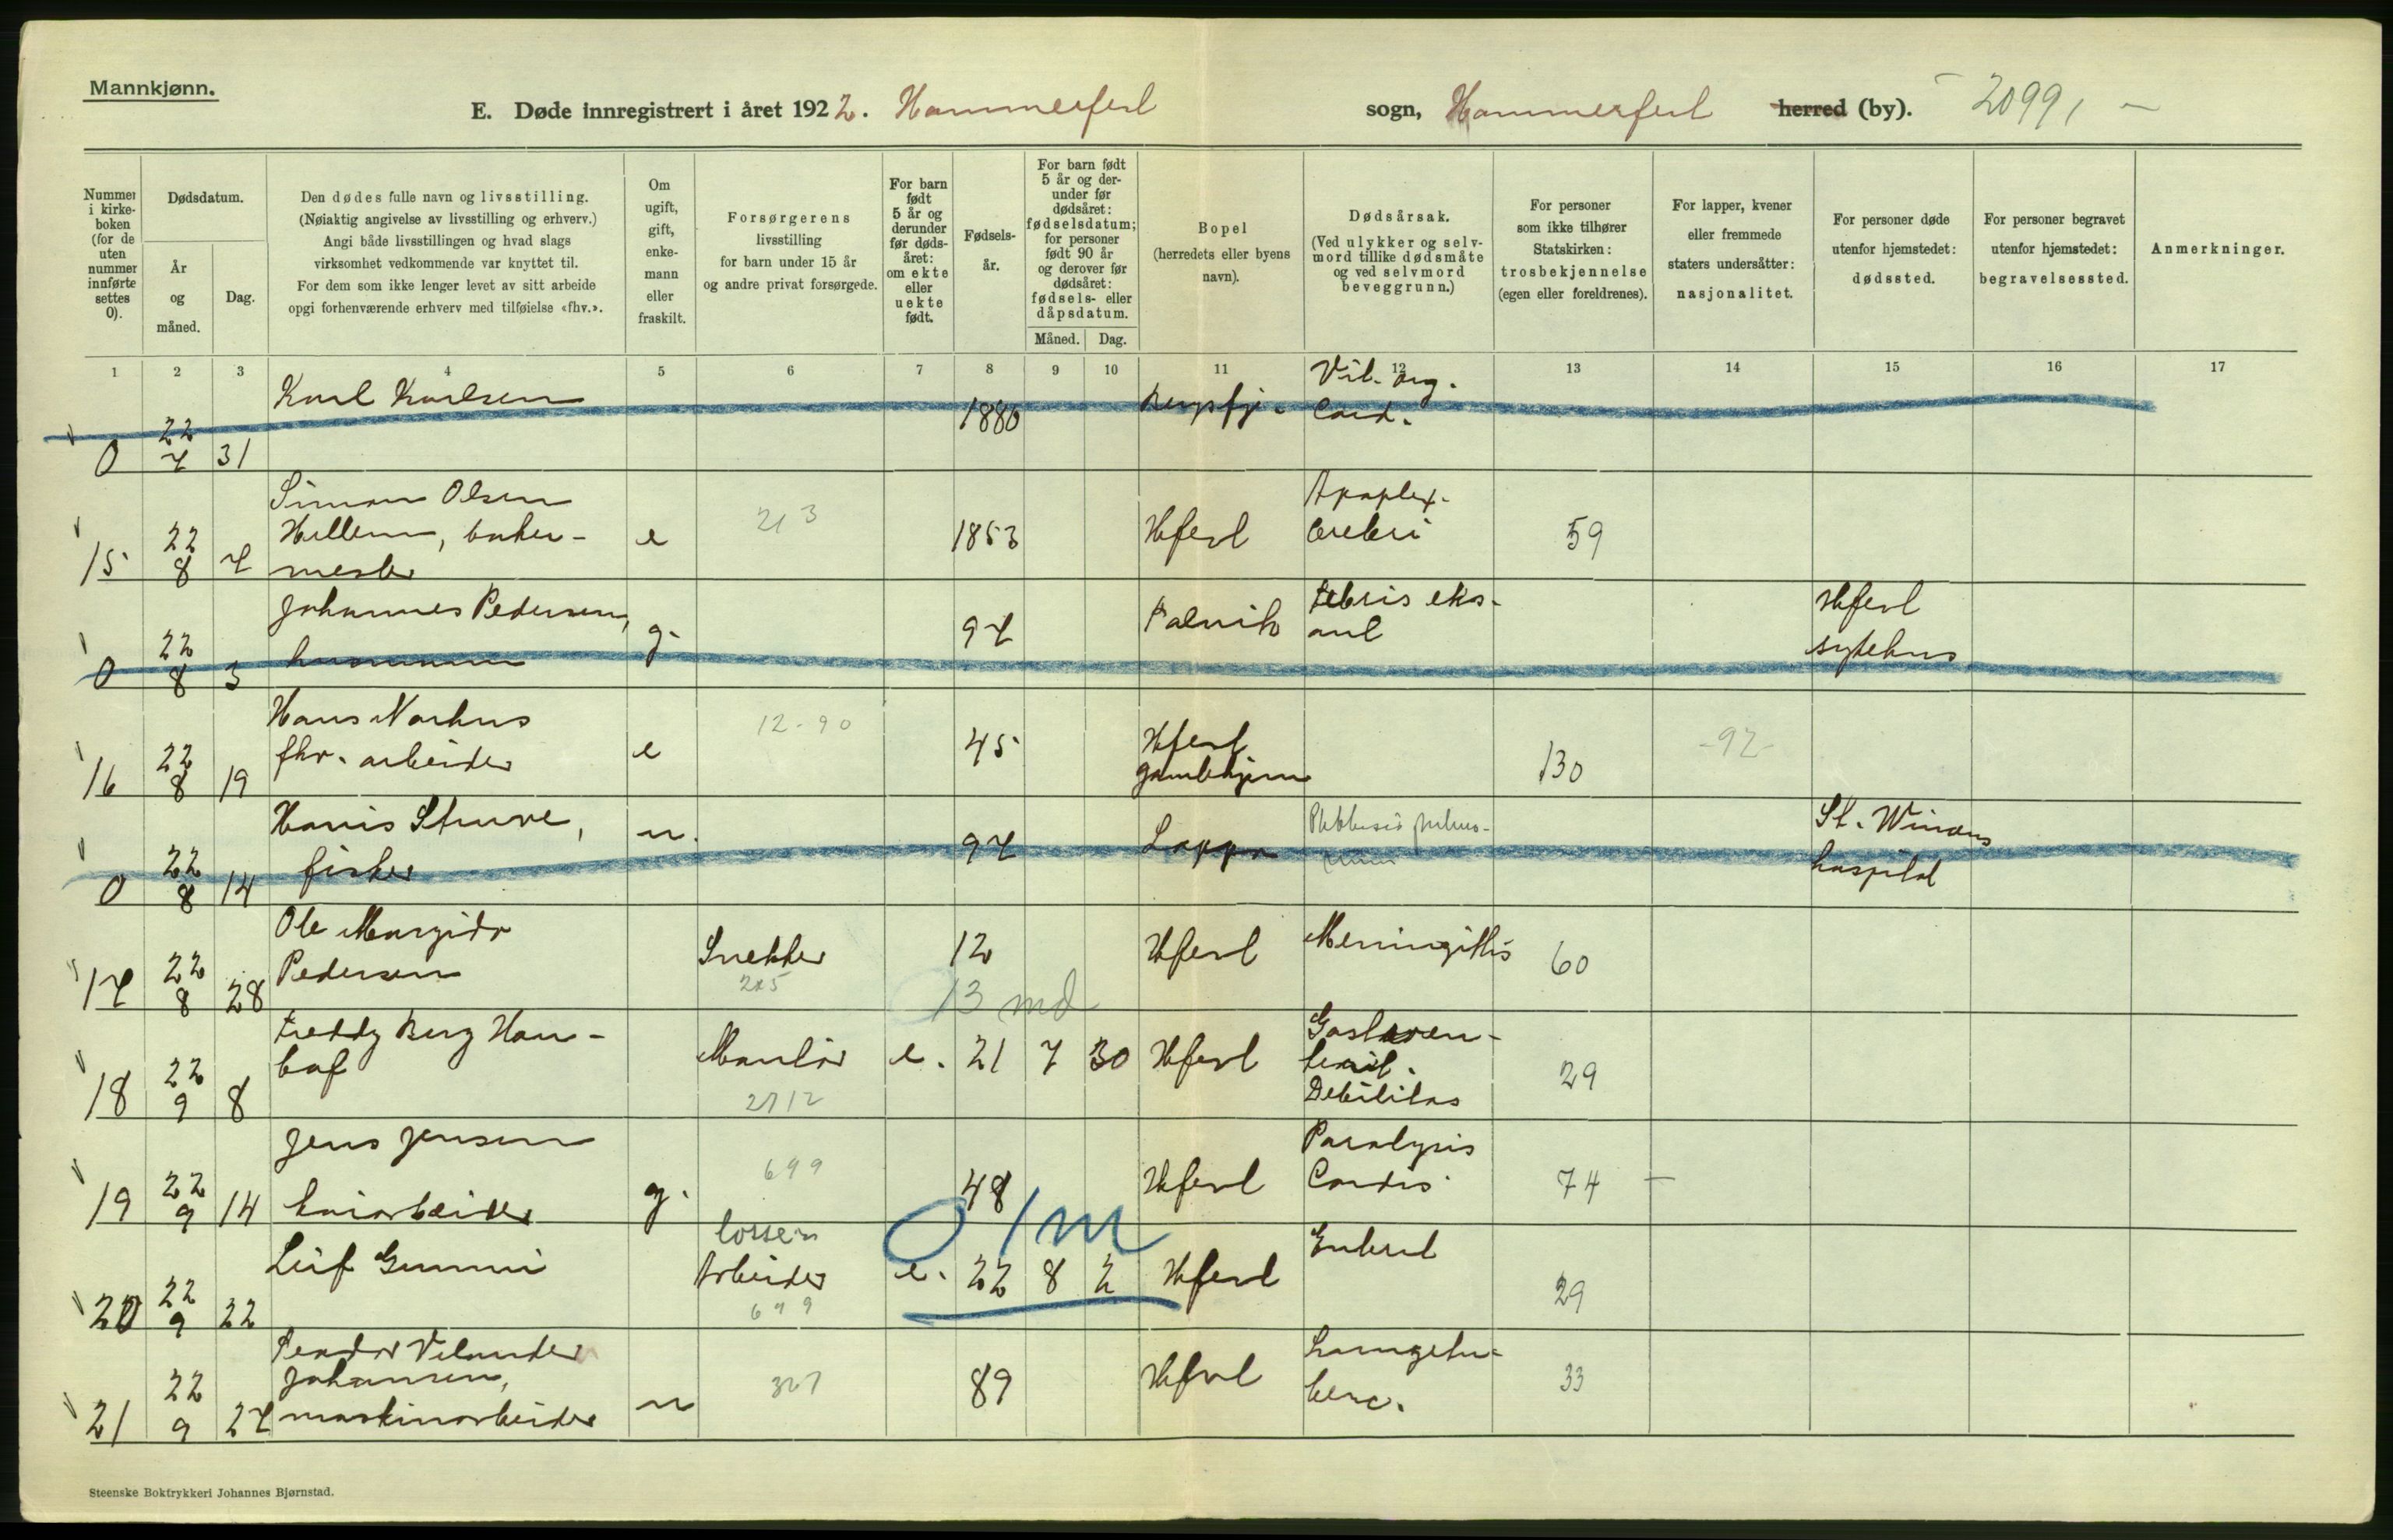 Mannkjønn.
E. Døde innregistrert i året 1922. Hammerfest sogn, Hammerfest herred (by). 2099
Nummer i kirkeboken (for de uten nummer innførte settes 0).
Dødsdatum.
År og måned.
Dag.
Den dødes fulle navn og livsstilling.
(Nøiaktig angivelse av livsstilling og erhverv.)
Angi både livsstillingen og hvad slags
virksomhet vedkommende var knyttet til.
For dem som ikke lenger levet av sitt arbeide
opgi forhenværende erhverv med tilføielse «fhv.».
Om ugift, gift, enkemann eller fraskilt.
Forsørgerens
livsstilling
for barn under 15 år
og andre privat forsørgede.
For barn født 5 år og derunder før dødsåret: om ekte eller uekte født.
Fødselsår.
For barn født 5 år og derunder før dødsåret: fødselsdatum; for personer født 90 år og derover før dødsåret: fødsels- eller dåpsdatum.
Måned. Dag.
Bopel
(herredets eller byens
navn).
Dødsårsak.
(Ved ulykker og selvmord tillike dødsmåte og ved selvmord beveggrunn.)
For personer
som ikke tilhører
Statskirken:
trosbekjennelse
(egen eller foreldrenes).
For lapper, kvener
eller fremmede
staters undersåtter:
nasjonalitet.
For personer døde
utenfor hjemstedet:
dødssted.
For personer begravet
utenfor hjemstedet:
begravelsessted.
Anmerkninger.
1 2 3 4 5 6 7 8 9 10 11 12 13 14 15 16 17
0 22 7 31 Karl Karlsen 1880 Bergsfj. Vit. org. Cord.
15 22 8 7 Simon Olsen
Hellem, baker-
mester e 213 1853 Hfest Apoplex. Cerebri 59
0 22 8 3 Johannes Pedersen, husmann g. 97 Talvik Hfest sykehus
16 22 8 19 Hans Norhus
fhv. arbeider e 12-90 45 Hfest gamlehjem 130 -92-
0 22 8 14 Hanis Struve,
fisker u. 97 Loppa St. Vincens hospital
17 22 8 28 Ole Margido
Pedersen Snekker 215 12 Hfest Meningitis 60
13 md
18 22 9 8 Freddy Berg Han-
Montør 2712 e. 21 7 30 Hfest Gastroen-
terit.
Debilitas 29
19 22 9 14 Jens Jensen
kaiarbeider g. 699 48 Hfest Paralysis
Cordis 74 —
0 1 m
20 22 9 22 Leif Gummi losse-
Arbeider 699 e. 22 8 2 Hfest Enterit 29
21 22 9 27 Peador Velander
Johansen,
maskinarbeider u 327 89 Hfest Lungetu-
berc. 33
Steenske Boktrykkeri Johannes Bjørnstad.